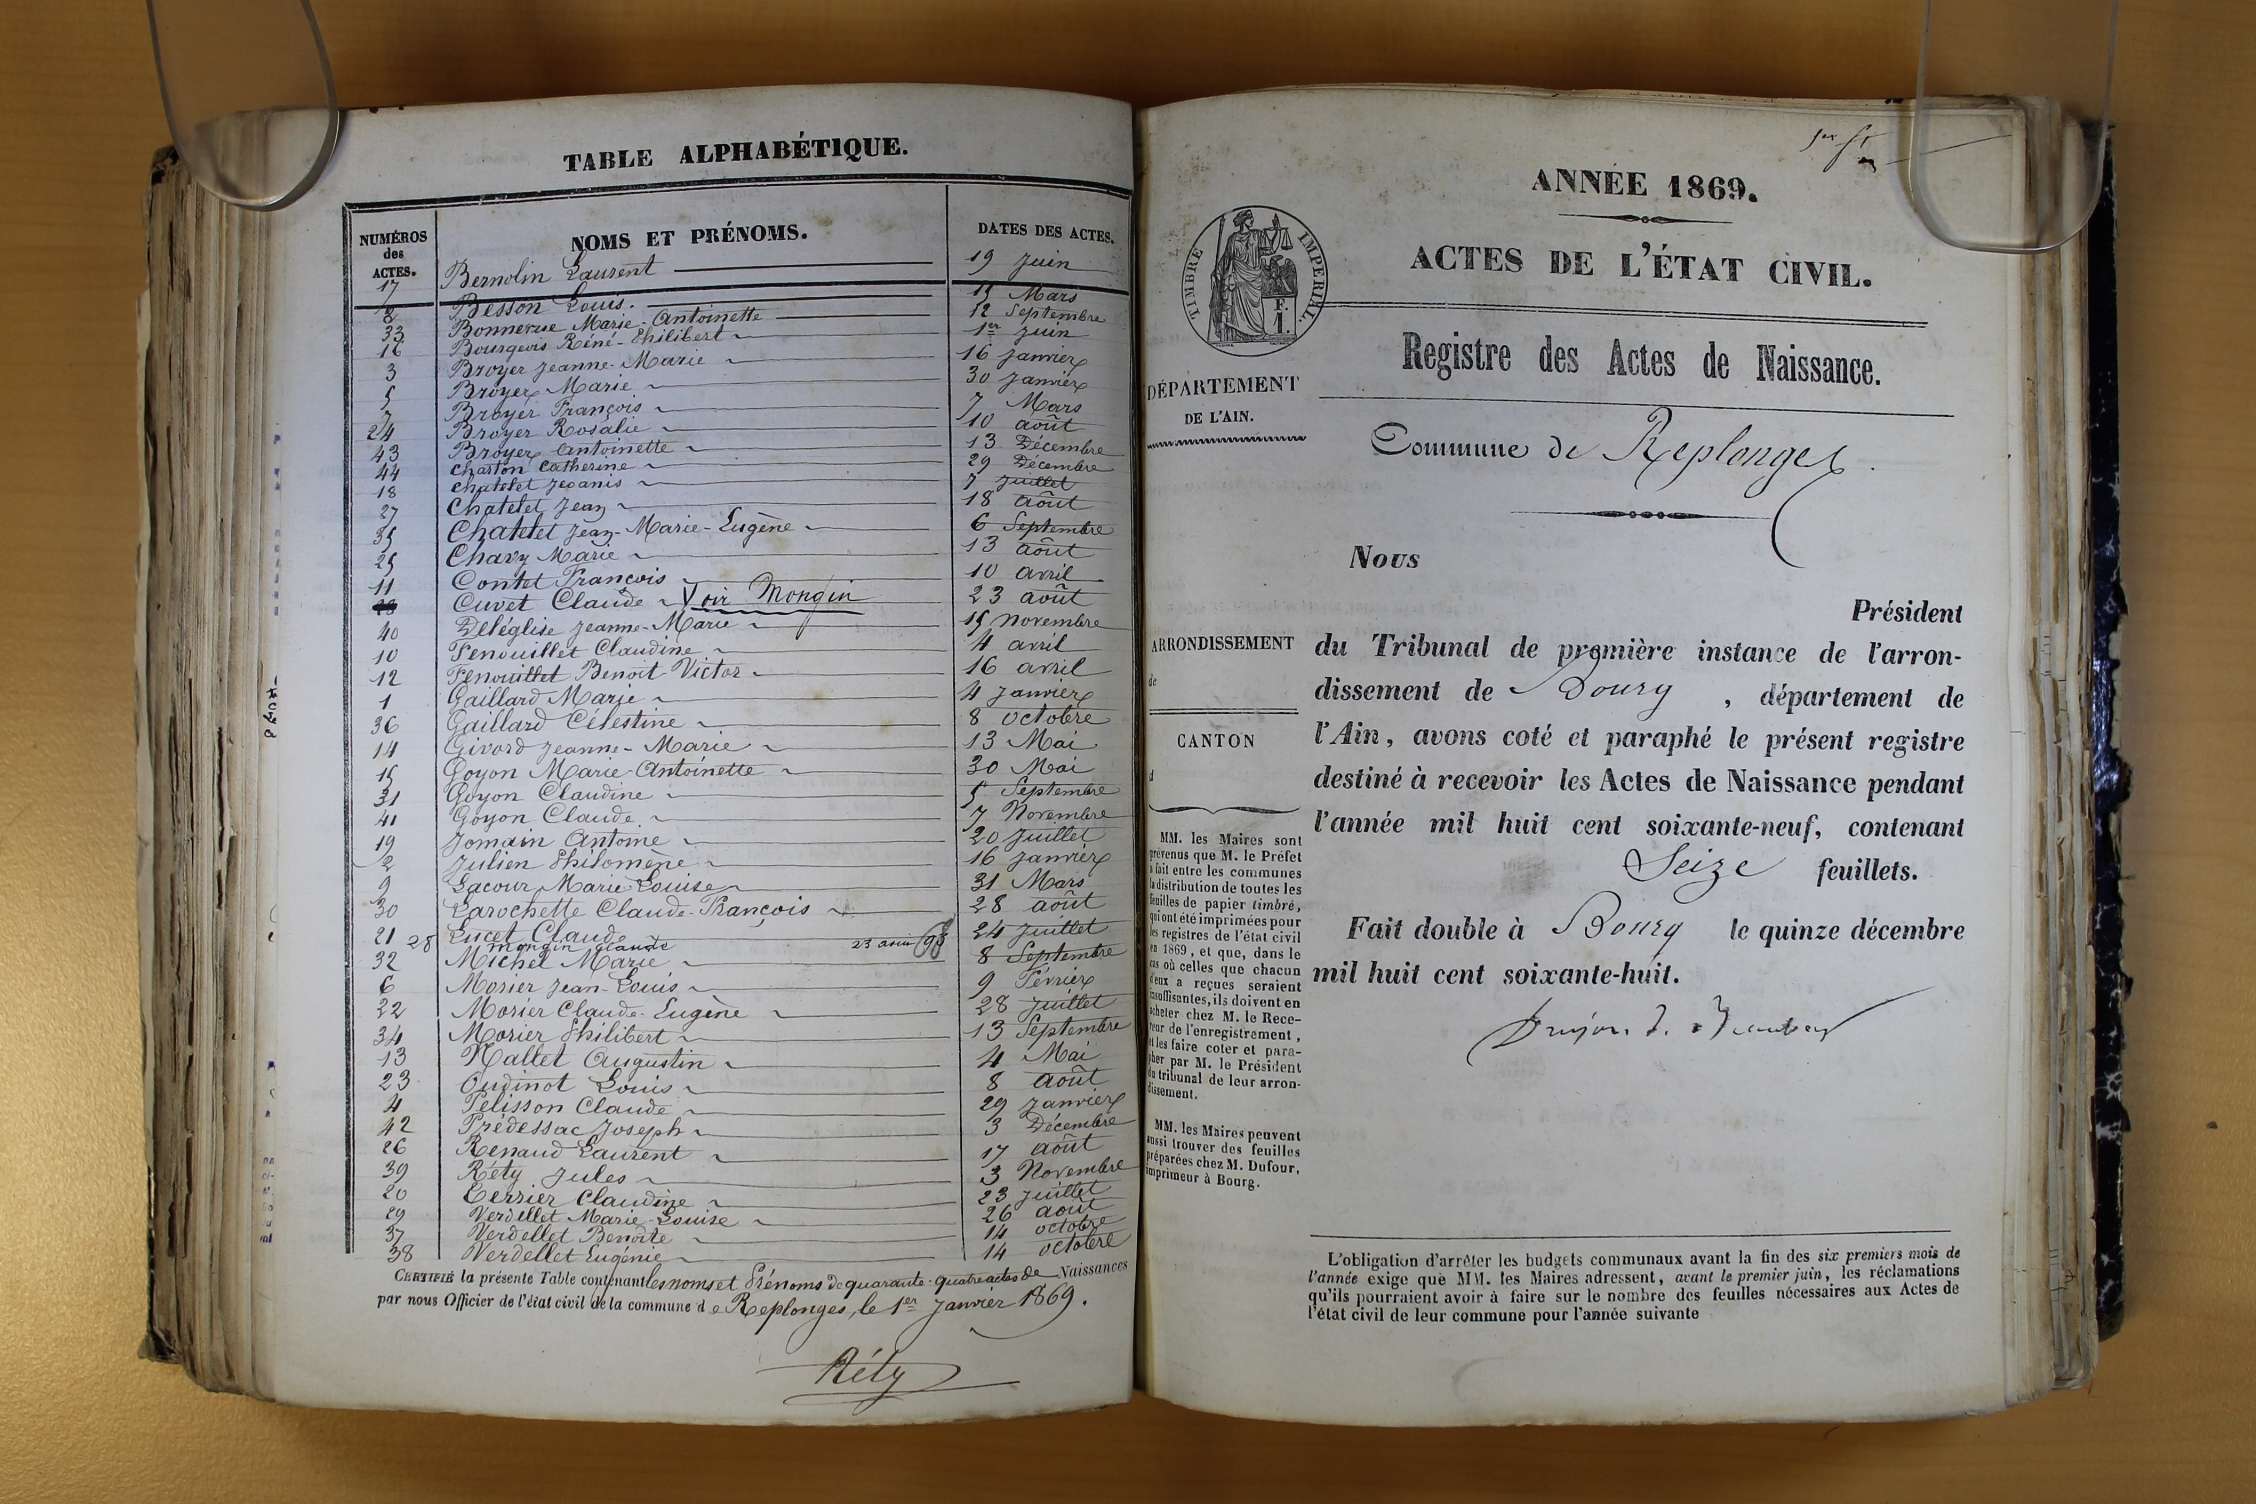 TABLE ALPHABÉTIQUE.
NUMÉROS des ACTES. NOMS ET PRÉNOMS. DATES DES ACTES.
17 Bernolin Laurent 19 Juin
8 Besson Louis. 15 Mars
33 Bonnerue Marie-Antoinette 12 Septembre
16 Bourgeois Réné-Philibert 1er Juin
3 Broyer Jeanne-Marie 16 Janvier
5 Broyer Marie 30 Janvier
7 Broyer François 7 Mars
24 Broyer Rosalie 10 août
43 Broyer Antoinette 13 Décembre
44 Chaston Catherine 29 Décembre
18 Chatelet 7 Juillet
27 Chatelet Jean 18 août
35 Chatelet Jean-Marie-Eugène 6 Septembre
25 Chavy Marie 13 août
11 Contet François 10 avril
28 Cuvet Claude Voir Mongin 23 août
40 Deléglise Jeanne-Marie 15 Novembre
10 Fenouillet Claudine 4 avril
12 Fenouillet Benoît-Victor 16 avril
1 Gaillard Marie 4 Janvier
36 Gaillard Célestine 8 octobre
14 Givord Jeanne-Marie 13 Mai
15 Goyon Marie-Antoinette 30 Mai
31 Goyon Claudine 5 Septembre
41 Goyon Claude 7 Novembre
19 Jomain Antoine 20 Juillet
2 Julien Philomène 16 Janvier
9 Lacour Marie-Louise 31 Mars
30 Larochette Claude-François 28 août
21 Lucet Claude 24 Juillet
28 Mongin Claude 23 août
32 Michel Marie 8 Septembre
6 Morier Jean-Louis 9 Février
22 Morier Claude-Eugène 28 Juillet
34 Morier Philibert 13 Septembre
13 Nallet Augustin 4 Mai
23 Oudinot Louis 8 août
4 Pelisson Claude 29 Janvier
42 Prédessac Joseph 3 Décembre
26 Renaud Laurent 17 août
39 Réty Jules 3 Novembre
20 Terrier Claudine 23 Juillet
29 Verdellet Marie-Louise 26 août
37 Verdellet Benoîte 14 octobre
38 Verdellet Eugénie 14 octobre
CERTIFIÉ la présente Table contenant les noms et Prénoms de quarante-quatre actes de Naissances
par nous Officier de l'état civil de la commune de Replonges, le 1er Janvier 1869.
Réty
ANNÉE 1869.
TIMBRE IMPÉRIAL.
F.
1.
ACTES DE L'ÉTAT CIVIL.
Registre des Actes de Naissance.
DÉPARTEMENT
DE L'AIN.
Commune de Replonges.
ARRONDISSEMENT
de
CANTON
d
MM. les Maires sont
prévenus que M. le Préfet
a fait entre les communes
la distribution de toutes les
feuilles de papier timbré,
qui ont été imprimées pour
les registres de l'état civil
en 1869, et que, dans le
cas où celles que chacun
d'eux a reçues seraient
insuffisantes, ils doivent en
acheter chez M. le Rece-
veur de l'enregistrement,
et les faire coter et para-
pher par M. le Président
du tribunal de leur arron-
dissement.
MM. les Maires peuvent
aussi trouver des feuilles
préparées chez M. Dufour,
imprimeur à Bourg.
Nous
Président
du Tribunal de première instance de l'arron-
dissement de Bourg, département de
l'Ain, avons coté et paraphé le présent registre
destiné à recevoir les Actes de Naissance pendant
l'année mil huit cent soixante-neuf, contenant
Seize feuillets.
Fait double à Bourg le quinze décembre
mil huit cent soixante-huit.
L'obligation d'arrêter les budgets communaux avant la fin des six premiers mois de
l'année exige que MM. les Maires adressent, avant le premier juin, les réclamations
qu'ils pourraient avoir à faire sur le nombre des feuilles nécessaires aux Actes de
l'état civil de leur commune pour l'année suivante